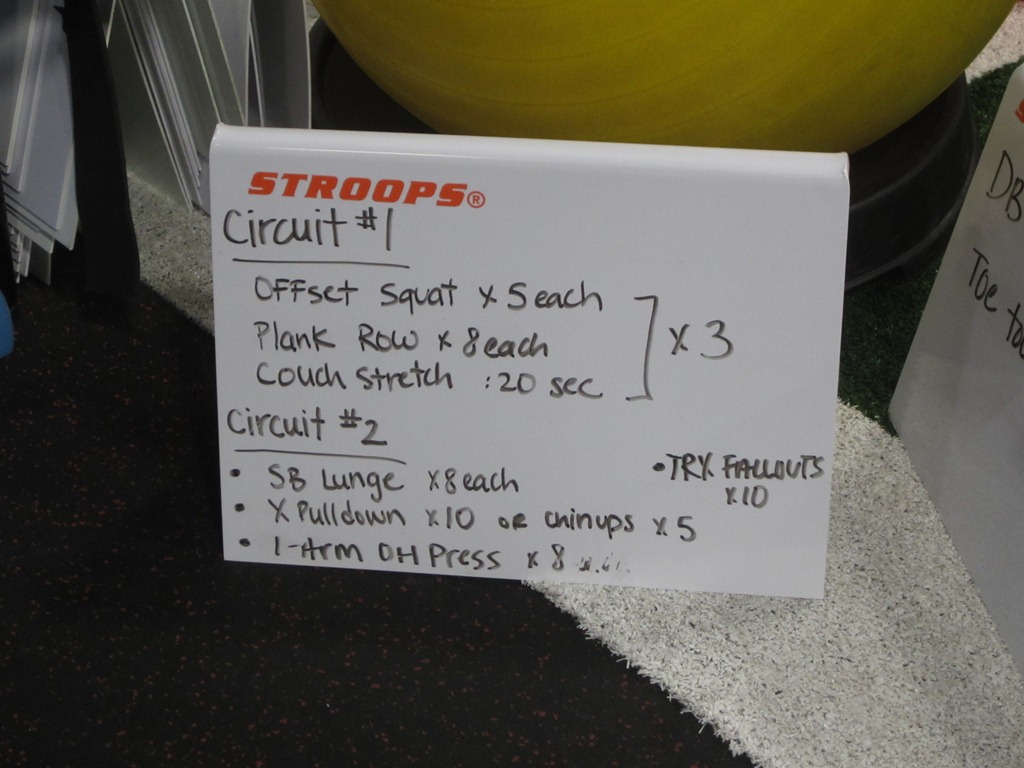 STROOPS®
Circuit #1
Offset Squat x 5 each
Plank Row x 8 each
Couch Stretch :20 sec
x 3
Circuit #2
• SB Lunge x8 each
• X Pulldown x10 or chinups x 5
• 1-Arm OH Press x 8
• TRX FALLOUTS
x10
DB
Toe